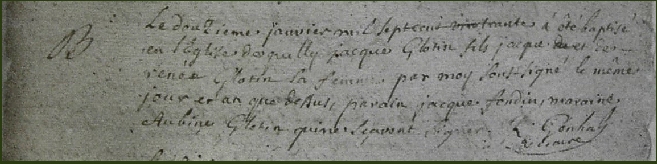 B
Le douzieme janvier mil sept cent trante à été baptisé
en l'Eglise de jacque Glotin fils jacque et de
renee Glotin la femme par moy sousigné le même
jour et an que dessus, parain jacque fondin, maraine
Aubine Glotin qui ne sçavent signer.